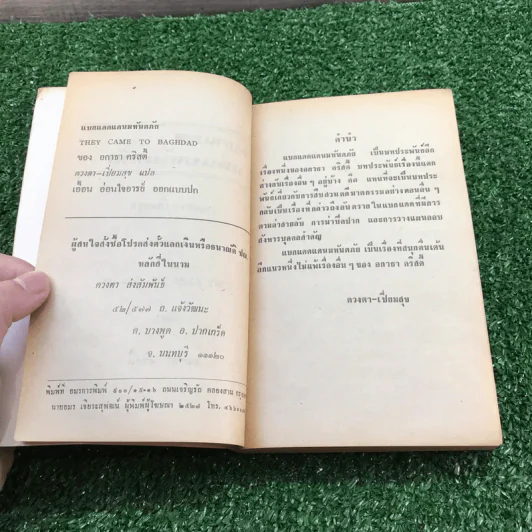 แบกแดดแดนมหันตภัย
THEY CAME TO BAGHDAD
ของ อกาธา คริสตี้
ดวงตา-เปี่ยมสุข แปล
เอื้อน อ่อนใจอารย์ ออกแบบปก
ผู้สนใจสั่งซื้อโปรดส่งตั๋วแลกเงินหรือธนาณัติ ปณ.
หลักสี่ในนาม
ดวงตา ส่งสัมพันธ์
๕๒/๕๗๗ ถ. แจ้งวัฒนะ
ต. บางพูด อ. ปากเกร็ด
จ. นนทบุรี ๑๑๑๒๐
พิมพ์ที่ อมรการพิมพ์ ๔๐๐/๑๕-๑๖ ถนนเจริญรัถ คลองสาน
นายอมร ผู้พิมพ์ผู้โฆษณา ๒๕๒๗ โทร.
คำนำ
แบกแดดแดนมหันตภัย เป็นบทประพันธ์อีก
เรื่องหนึ่งของอกาธา คริสตี้ บทประพันธ์เรื่องนี้แตก
ต่างกับเรื่องอื่นๆ อยู่บ้าง คือ แทนที่จะเป็นบทประ
พันธ์เกี่ยวกับการสืบสวนคดีฆาตกรรมอย่างตอนอื่น ๆ
กลับเป็นเรื่องที่กล่าวถึงอันตรายในแบกแดดที่มีการ
ตามล่าสายลับ การฆ่าปิดปาก และการวางแผนลอบ
สังหารบุคคลสำคัญ
แบกแดดแดนมหันตภัย เป็นเรื่องที่สนุกตื่นเต้น
อีกแนวหนึ่งไม่แพ้เรื่องอื่นๆ ของ อกาธา คริสตี้
ดวงตา-เปี่ยมสุข